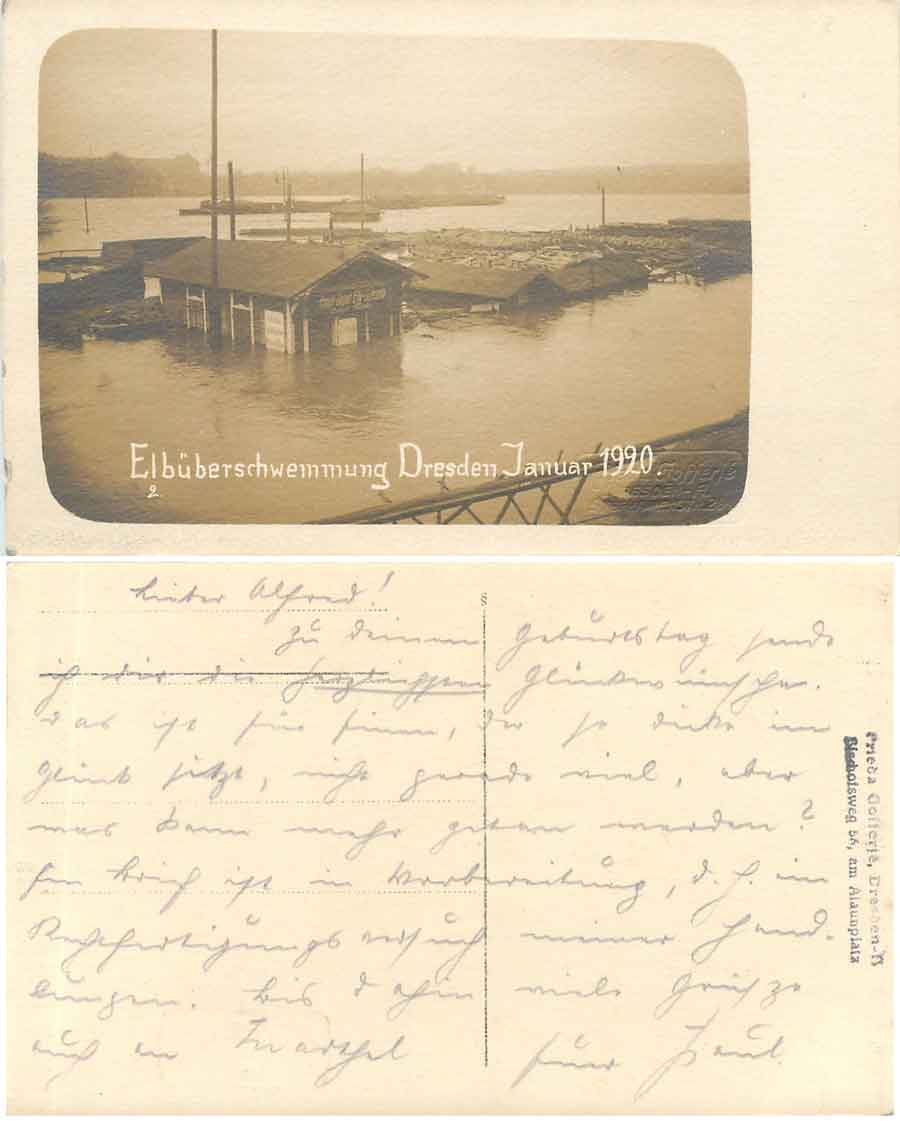 Elbüberschwemmung Dresden Januar 1920.
2
Lieber Alfred!
Zu deinem Geburtstag sende
ich dir die herzlichsten Glückwünsche.
Das ist für einen, der so dicke im
Glück sitzt, nicht gerade viel, aber
was kann mehr getan werden?
Ein Brief ist in Vorbereitung, d. h. im
Rechtfertigungsversuch meiner Hand-
lungen. Bis dahin viele Grüsze
auch an
Paul
Frieda Gofferjé, Dresden-N
Bischofsweg 56, am Alaunplatz